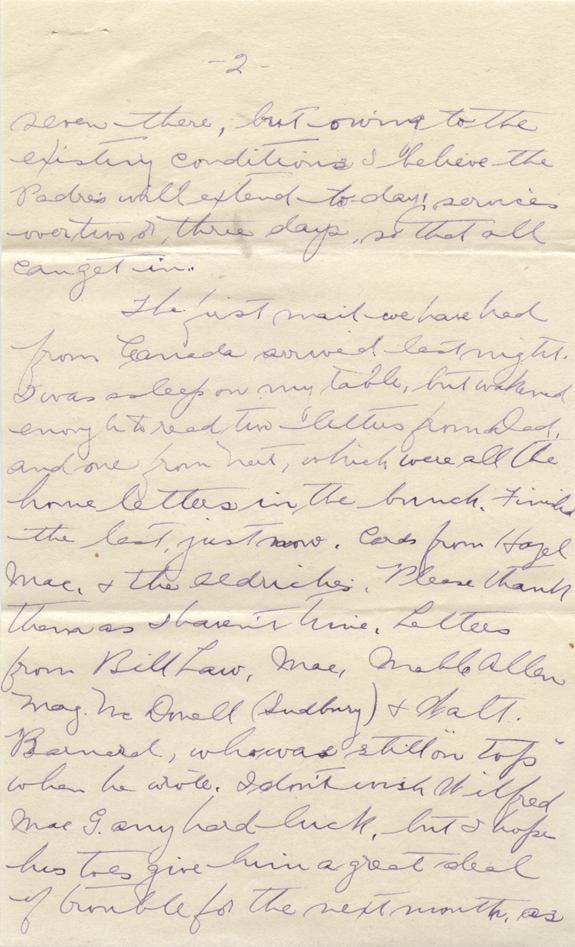 - 2 -
seven there, but owing to the
existing conditions I believe the
Padres will extend to-day's services
over two or three days, so that all
can get in.
The first mail we have had
from Canada arrived last night.
I was asleep on my table, but wakened
enough to read two letters from Dad,
and one from Neit, which were all the
home letters in the bunch. Finished
the last, just now. Cards from Hazel
Mac. & the Aldriches. Please thank
them as I haven't time. Letters
from Bill Law, Mac, Mable Allen
Mag. McDonell (Sudbury) & Walt.
Barnard, who was still "on top"
when he wrote. I don't wish Wilfred
Mac G. any hard luck, but I hope
his toes give him a great deal
of trouble for the next month, as